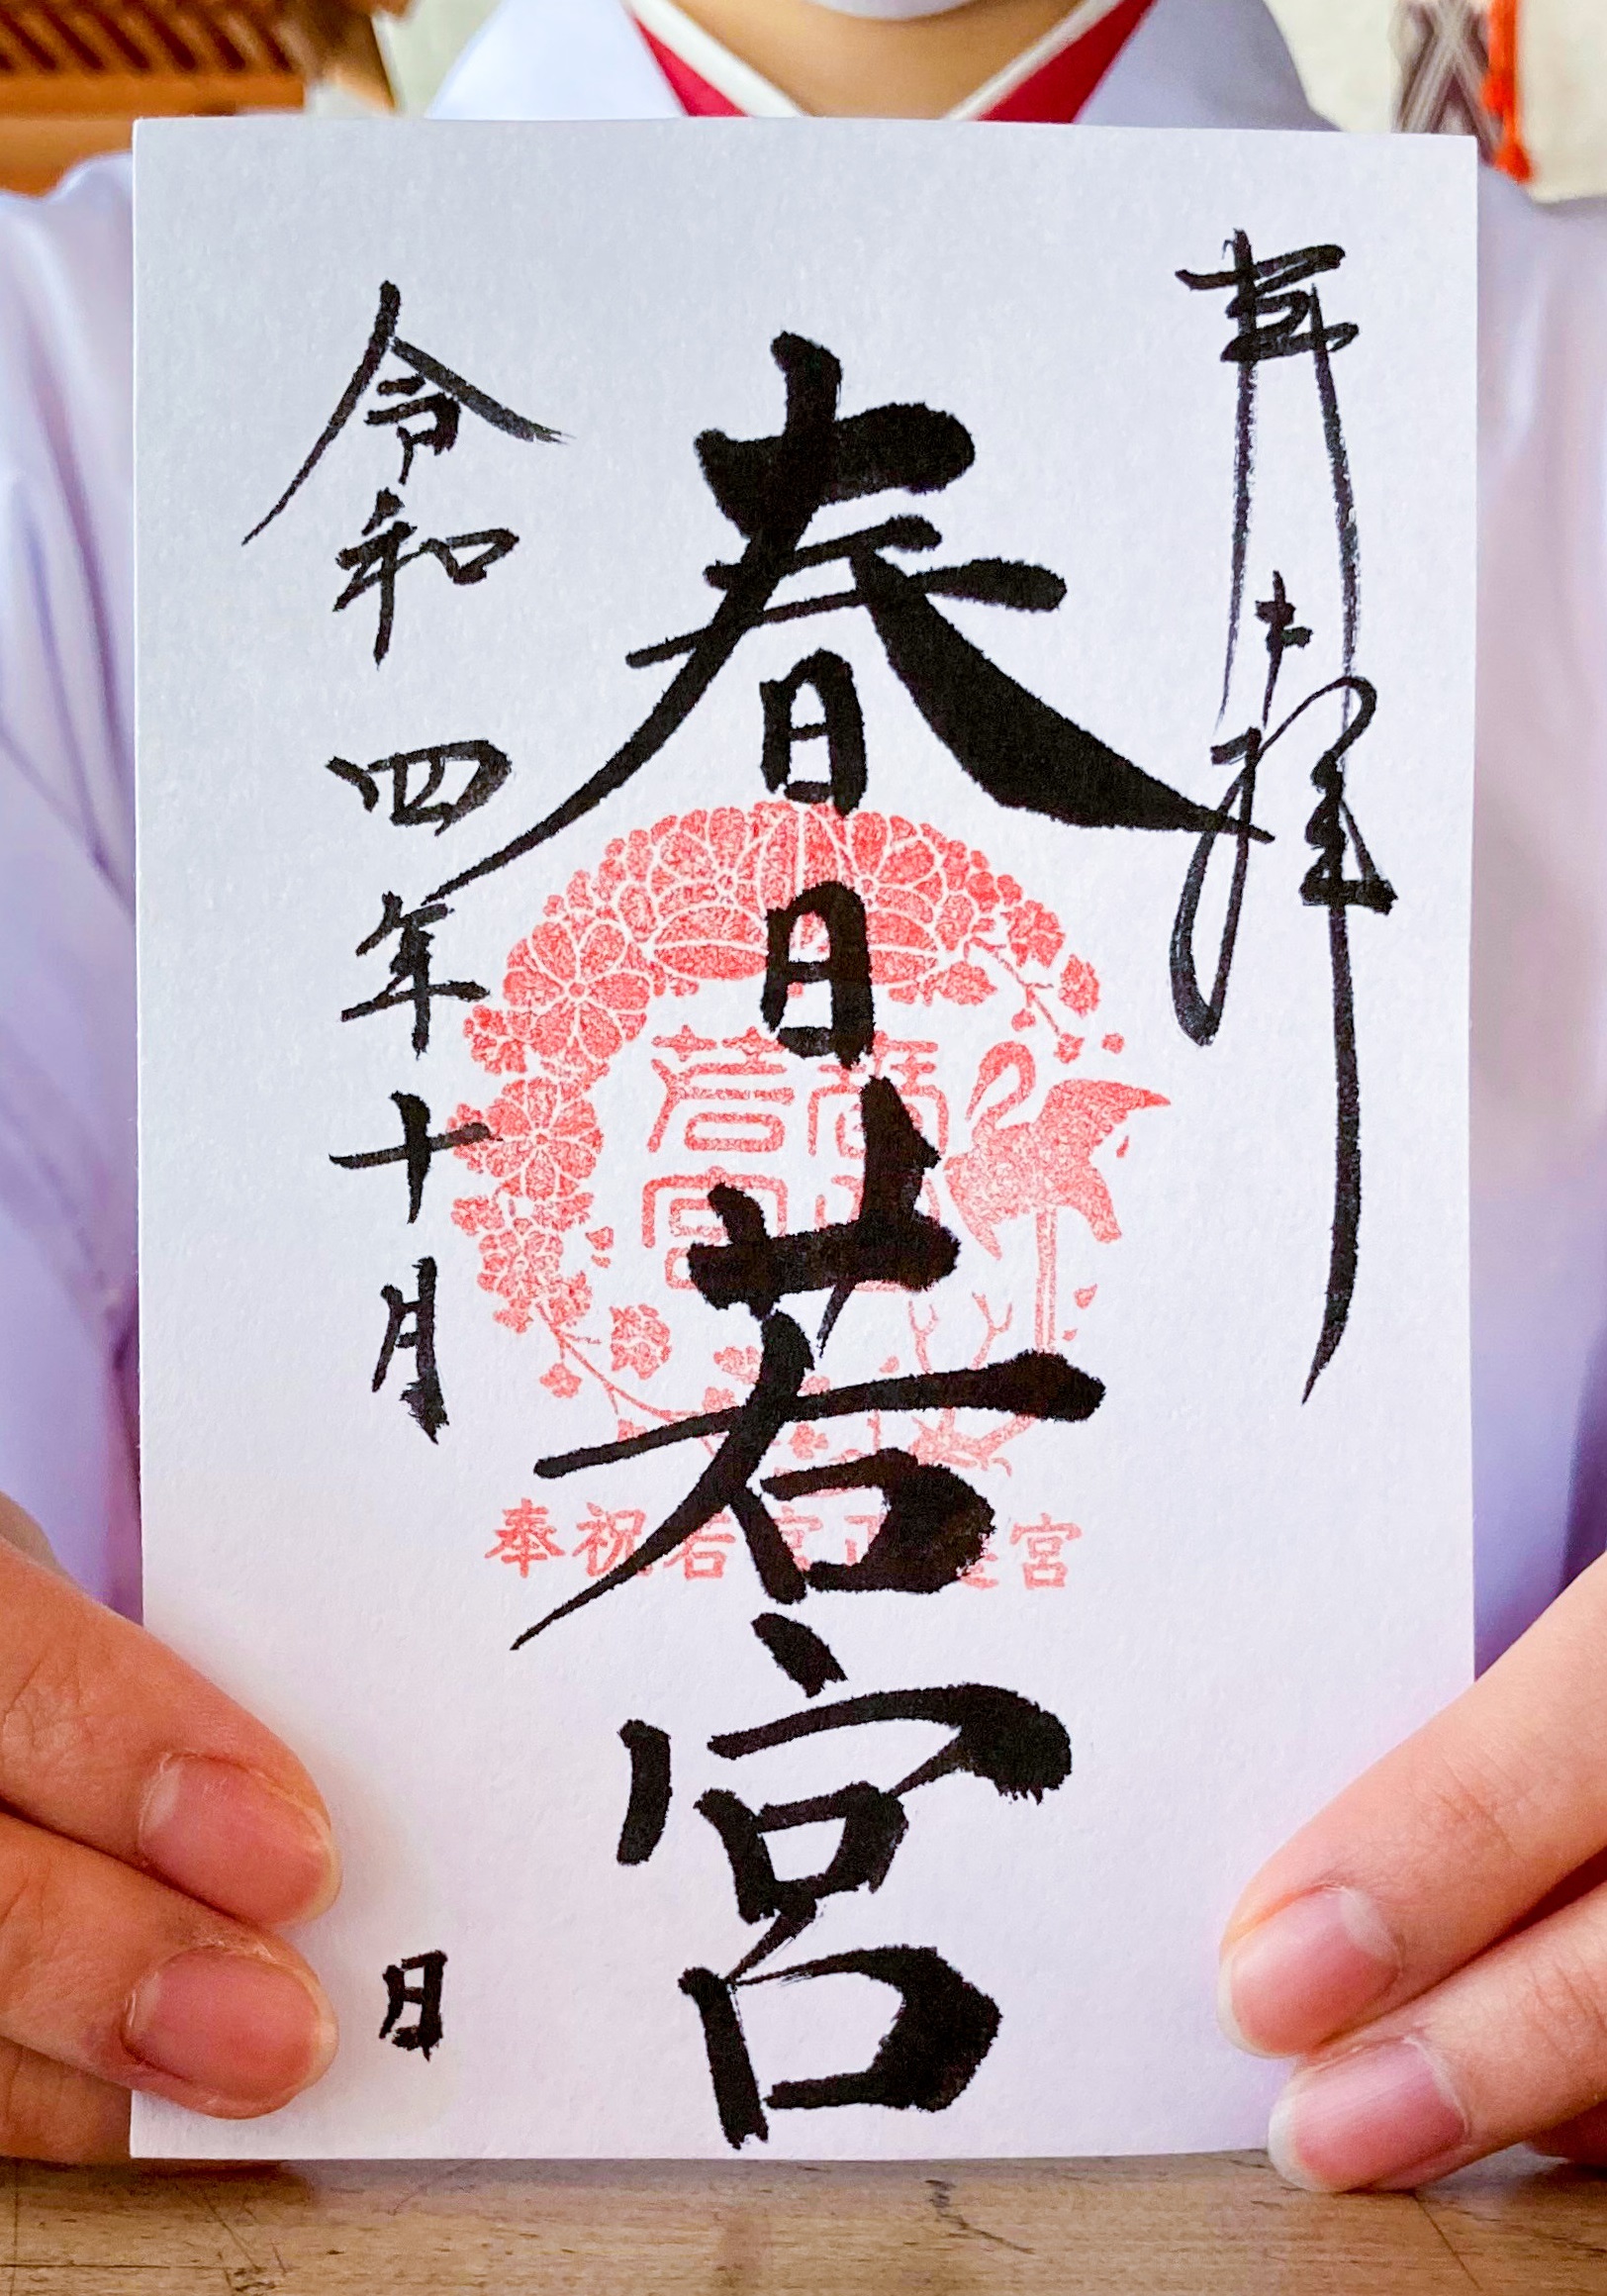 奉拝
春日若宮
令和四年十月 日
奉祝若宮正遷宮